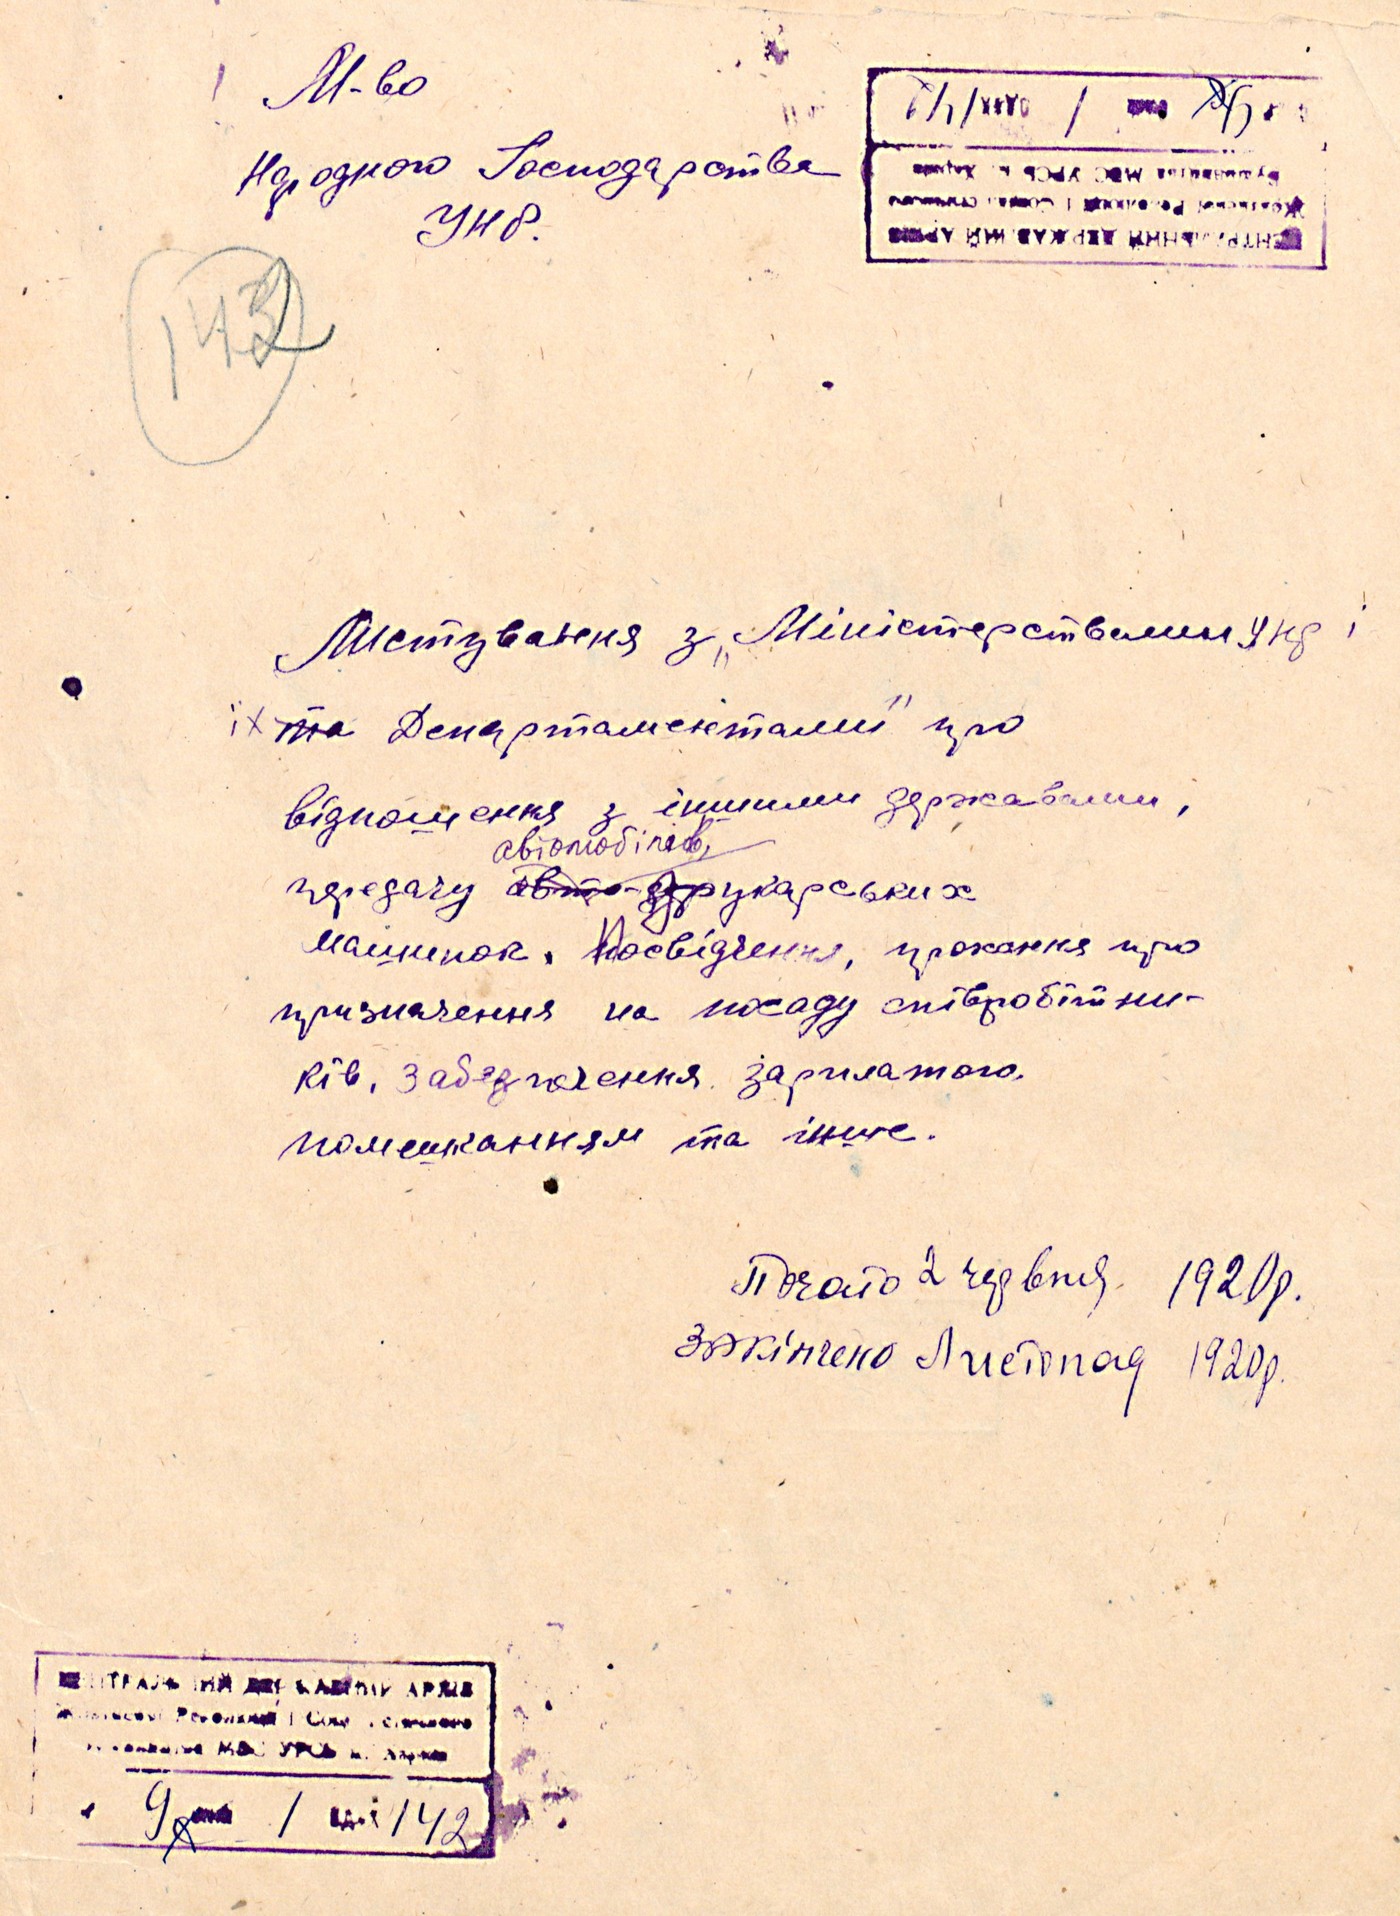 М-во
Народного Господарства
УНР.
142
Листування з „Міністерствами УНР і
їх та Департаментами" про
відношення з іншими державами,
автомобілів,
передачу авто-друкарських
машинок. Посвідчення, прохання про
призначення на посаду співробітни-
ків, забезпечення зарплатою,
помешканням та інше.
Почато 2 червня 1920р.
Закінчено Листопад 1920р.
ЦЕНТРАЛЬНИЙ ДЕРЖАВНИЙ АРХІВ
Жовтневої Революції і Соціалістичного
Будівництва МВС УРСР м. Харків
1 од.зх 142
ЦЕНТРАЛЬНИЙ ДЕРЖАВНИЙ АРХІВ
Жовтневої Революції і Соціалістичного
Будівництва МВС УРСР м. Харків
1 од.зх 142